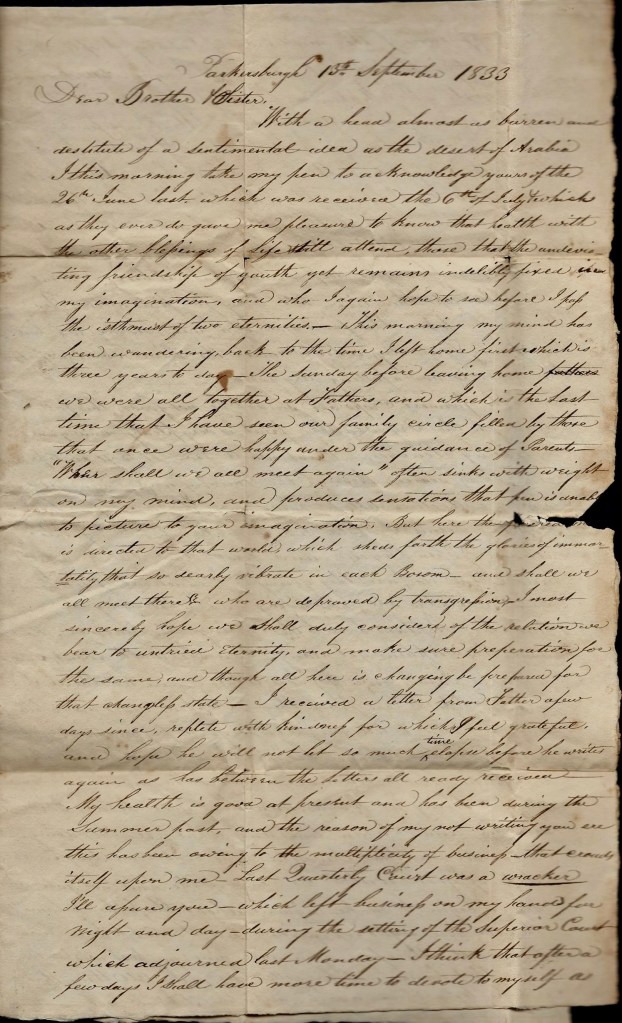 Parkersburgh 13th September 1833
Dear Brother & Sister.
With a head almost as barren and
destitute of a sentimental idea as the desert of Arabia
I this morning take my pen to acknowledge yours of the
26th June last which was received the 6th of July & which
as they ever do gave me pleasure to know that health with
the other blessings of life still attend, those that the undevia
ting friendship of youth yet remains indelibly fixed in
my imagination, and who I again hope to see before I pass
the isthmust of two eternities.— This morning my mind has
been wandering back to the time I left home first which is
three years to day — The Sunday before leaving home
we were all together at Fathers, and which is the last
time that I have seen our family circle filled by those
that once were happy under the guidance of Parents—
"When shall we all meet again" often sinks with weight
on my mind, and produces sensations that pen is unable
to picture to your imagination. But here the
is directed to that world which sheds forth the glories of immor
tality that so dearly vibrate in each Bosom— and shall we
all meet there & who are depraved by transgression— I most
sincerely hope we shall duly considere of the relation we
bear to untried Eternity, and make sure preperation for
the same, and though all here is changing be prepared for
that changeless state — I received a letter from Father a few
days since, replete with kindness for which I feel grateful,
and hope he will not let so much time elapse before he writes
again as has between the letters all ready received —
My health is good at present and has been during the
Summer past, and the reason of my not writing you ere
this has been owing to the multiplicity of business that crowds
itself upon me — Last Quarterly Court was a wracker
I'll assure you — which left business on my hand for
night and day — during the setting of the Superior Court
which adjourned last Monday — I think that after a
few days I shall have more time to devote to myself as